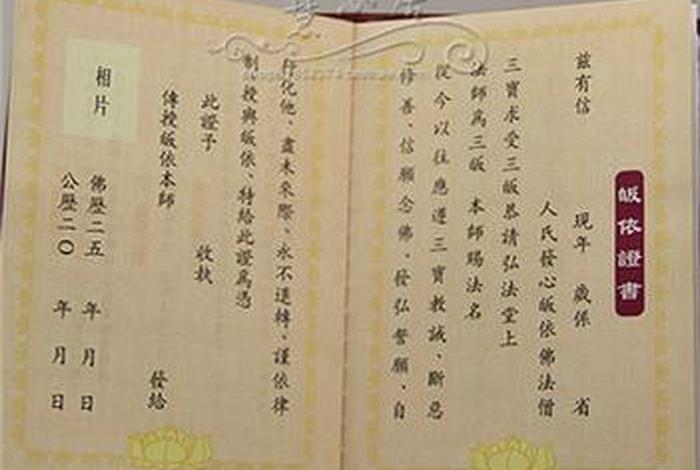 皈依證書
茲有信　現年　歲係　省
人氏發心皈依佛法僧
三寶求受三皈恭請弘法堂上
法師為三皈　本師賜法名
從今以往應遵三寶教誡、斷惡
修善、信願念佛。發弘誓願、自
行化他、盡未來際、永不退轉、謹依律
制授與皈依、特給此證為憑
此證予　收執
傳授皈依本師　發給
相片
佛歷二五　年　月　日
公歷二〇　年　月　日